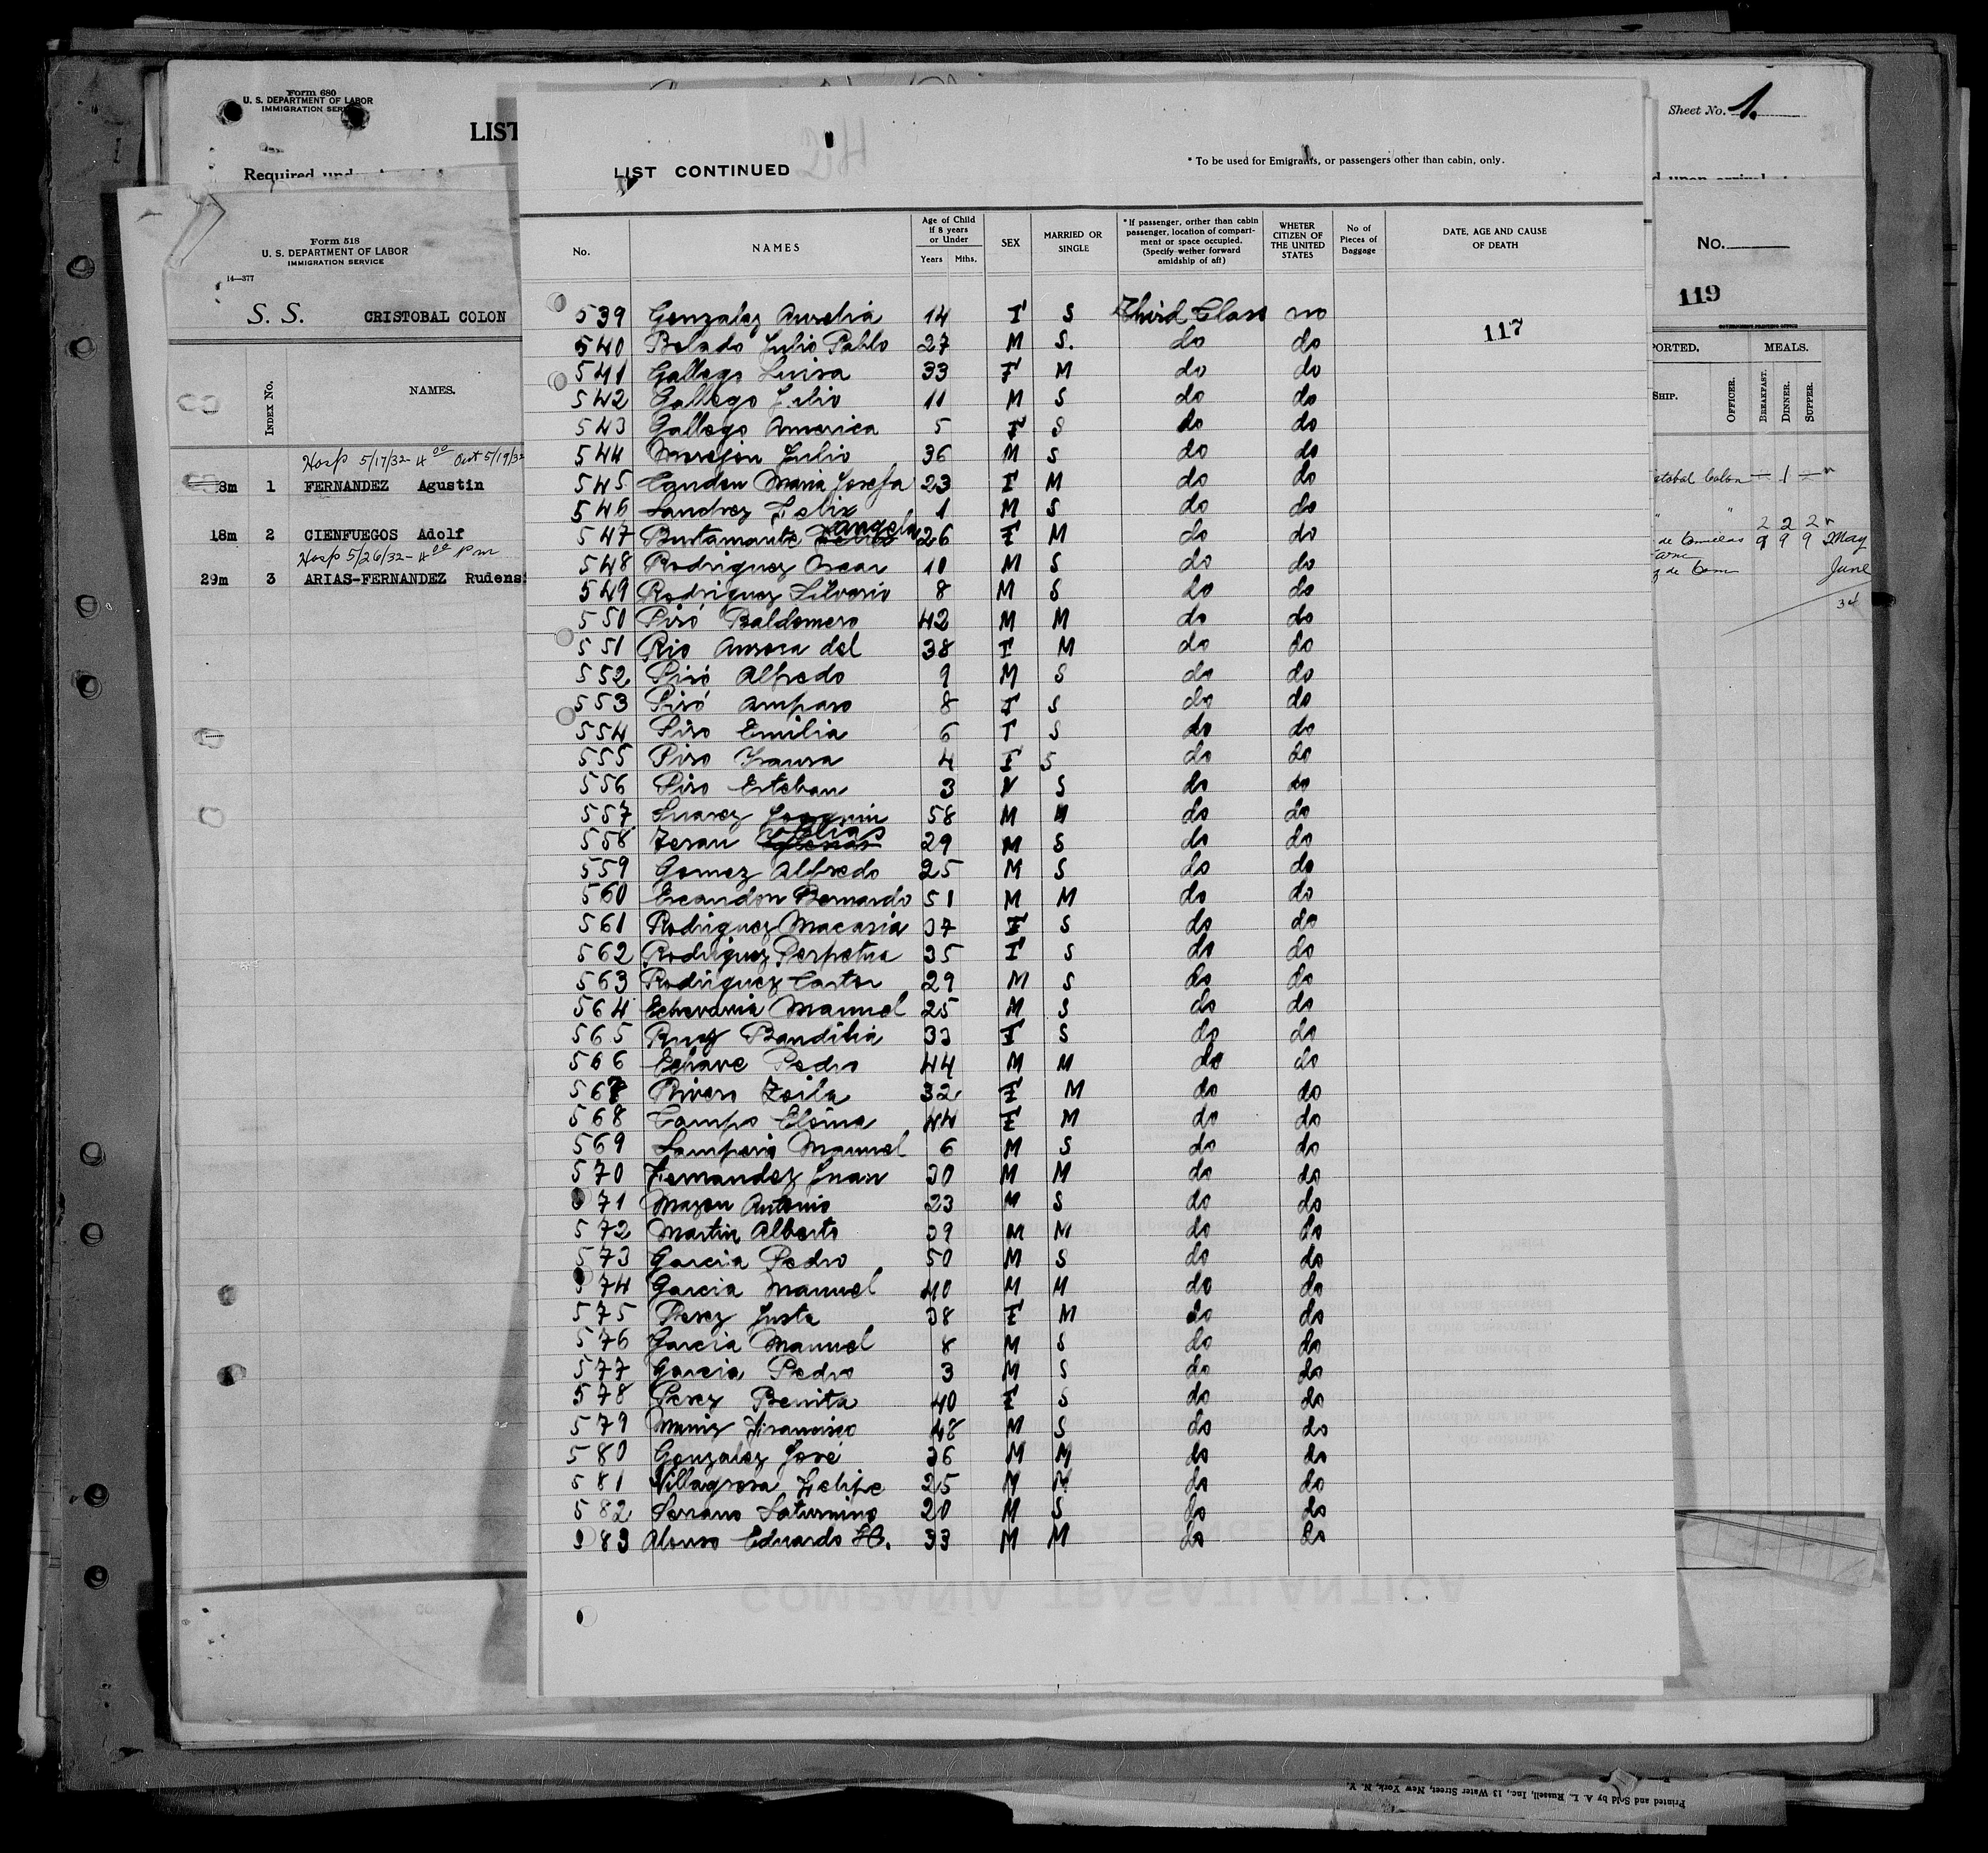 Form 680
U. S. DEPARTMENT OF LABOR
IMMIGRATION SER
LIST
Required und
Sheet No. 1.
Form 518
U. S. DEPARTMENT OF LABOR
IMMIGRATION SERVICE
14—377
S. S. CRISTOBAL COLON
INDEX No. NAMES.
Hosp 5/17/32 - 4 00 Out 5/19/32
8m 1 FERNANDEZ Agustin
18m 2 CIENFUEGOS Adolf
Hosp 5/26/32 - 4 00 Pm
29m 3 ARIAS-FERNANDEZ Rudens
LIST CONTINUED
* To be used for Emigrants, or passengers other than cabin, only.
No. NAMES Age of Child If 8 years or Under Years Mths. SEX MARRIED OR SINGLE * If passenger, orther than cabin passenger, location of compartment or space occupied. (Specify wether forward amidship of aft) WHETER CITIZEN OF THE UNITED STATES No of Pieces of Baggage DATE, AGE AND CAUSE OF DEATH
539 Gonzalez Aurelia 14 F S Third Class no
117
540 Bolado Julio Pablo 27 M S. do do
541 Gallego Luisa 33 F M do do
542 Gallego Julio 11 M S do do
543 Gallego America 5 F S do do
544 Morejon Julio 36 M S do do
545 Candon Maria Josefa 23 F M do do
546 Sanchez Felix 1 M S do do
547 Bustamante Angela 26 F M do do
548 Rodriguez Oscar 10 M S do do
549 Rodriguez Silverio 8 M S do do
550 Piró Baldomero 42 M M do do
551 Rio Aurora del 38 F M do do
552 Piró Alfredo 9 M S do do
553 Piró Amparo 8 F S do do
554 Piro Emilia 6 F S do do
555 Piro Isaura 4 F S do do
556 Piro Esteban 3 S do do
557 Suarez Joaquin 58 M M do do
558 Teran 29 M S do do
559 Gomez Alfredo 25 M S do do
560 Escandon Bernardo 51 M M do do
561 Rodriguez Macaria 37 F S do do
562 Rodriguez Perpetua 35 F S do do
563 Rodriguez Castor 29 M S do do
564 Echevarria Manuel 25 M S do do
565 Ruiz Bandilia 33 F S do do
566 Echave Pedro 44 M M do do
567 Rivero Zoila 32 F M do do
568 Campo Elsina 44 F M do do
569 Samperio Manuel 6 M S do do
570 Fernandez Juan 30 M M do do
71 Mazon Antonio 23 M S do do
572 Martin Alberto 39 M M do do
573 Garcia Pedro 50 M S do do
74 Garcia Manuel 40 M M do do
575 Perez Justa 38 F M do do
576 Garcia Manuel 8 M S do do
577 Garcia Pedro 3 M S do do
578 Perez Benita 40 F S do do
579 Muniz Francisco 48 M S do do
580 Gonzalez José 36 M M do do
581 Villagrosa Felipe 25 M M do do
582 Serrano Saturnino 20 M S do do
83 Alonso Eduardo H. 33 M M do do
COMPAÑÍA TRASATLANTICA
No.
119
PORTED. MEALS.
SHIP. OFFICER. BREAKFAST. DINNER. SUPPER.
stobal Colon — 1 —
2 2 2
de Comillas 9 9 9 May
de Com June
34
Printed and Sold by A. L. Russell, Inc., 13 Water Street, New York, N. Y.